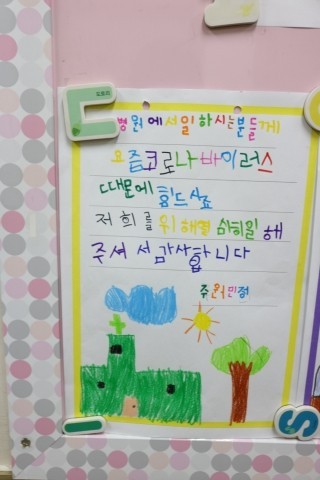 병원에서일하시는분들께
요즘코로나바이러스
때문에 힘드시죠
저희를 위해열심히일 해
주셔서감사합니다